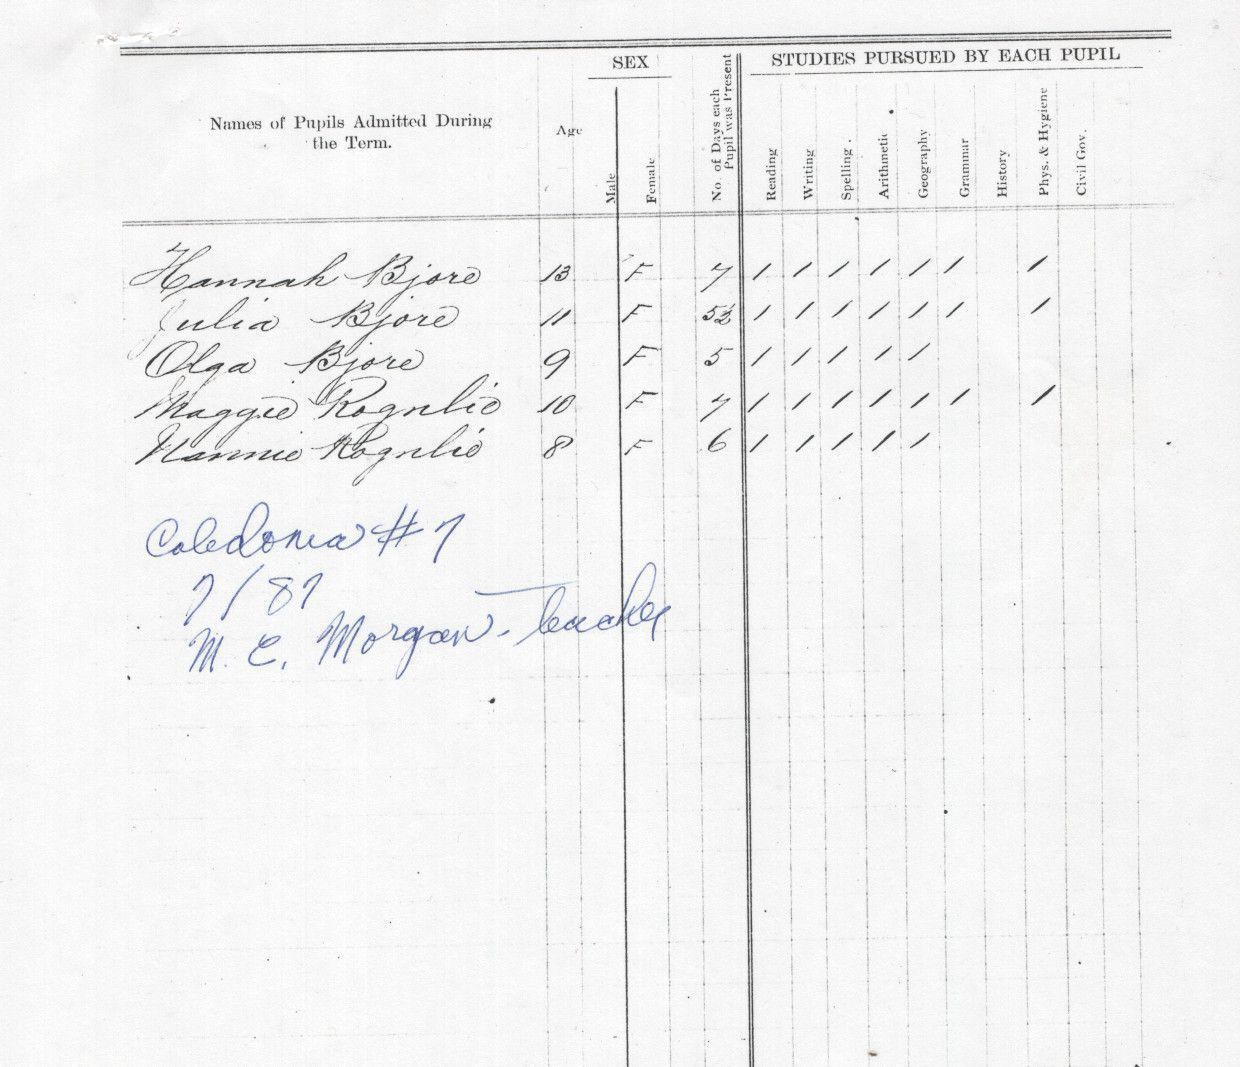 SEX
STUDIES PURSUED BY EACH PUPIL
Names of Pupils Admitted During
the Term.
Age
Male
Female
No. of Days each
Pupil was Present
Reading
Writing
Spelling
Arithmetic
Geography
Grammar
History
Phys. & Hygiene
Civil Gov.
Hannah Bjore 13 F 7 / / / / / / /
Julia Bjore 11 F 5½ / / / / / / /
Olga Bjore 9 F 5 / / / / /
Maggie Rognlie 10 F 7 / / / / / / /
Nannie Rognlie 8 F 6 / / / / /
Caledonia #7
7/87
M. E. Morgan - Teacher